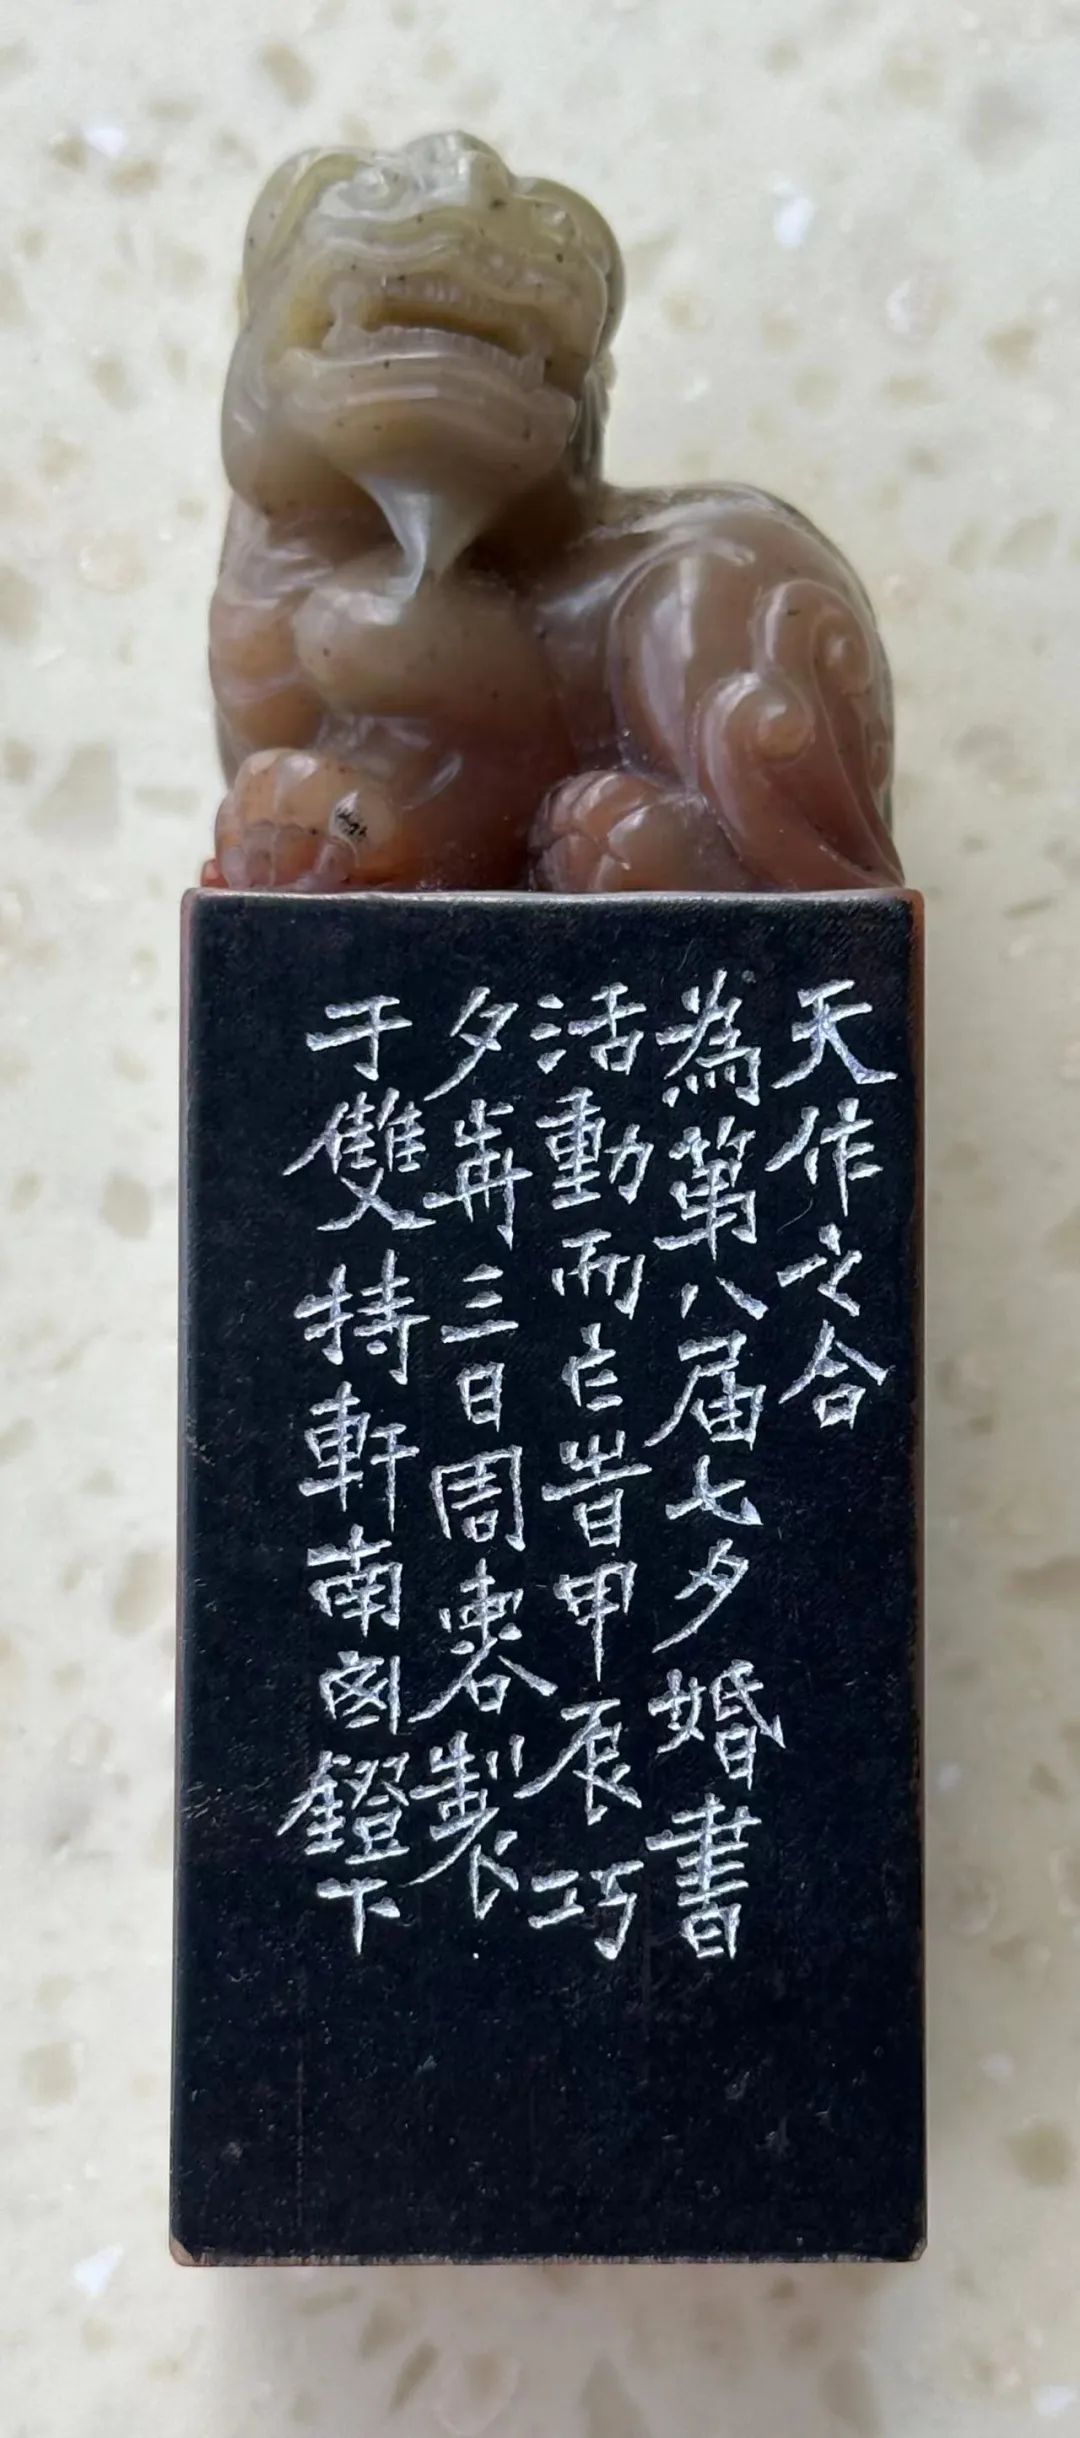 天作之合
為第八届七夕婚書
活動而乍旹甲辰巧
夕歬三日周製
于雙特軒南囱鐙下